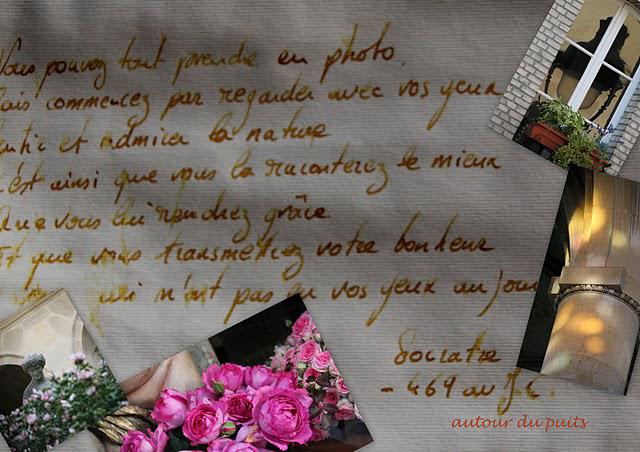 Vous pouvez tout prendre en photo.
Mais commencez par regarder avec vos yeux
Sentir et admirer la nature
C'est ainsi que vous la raconterez le mieux
Que vous lui rendrez grâce
Et que vous transmettrez votre bonheur
qui n'ont pas eu vos yeux un jour
Socrate
- 469 av J.C.
autour du puits